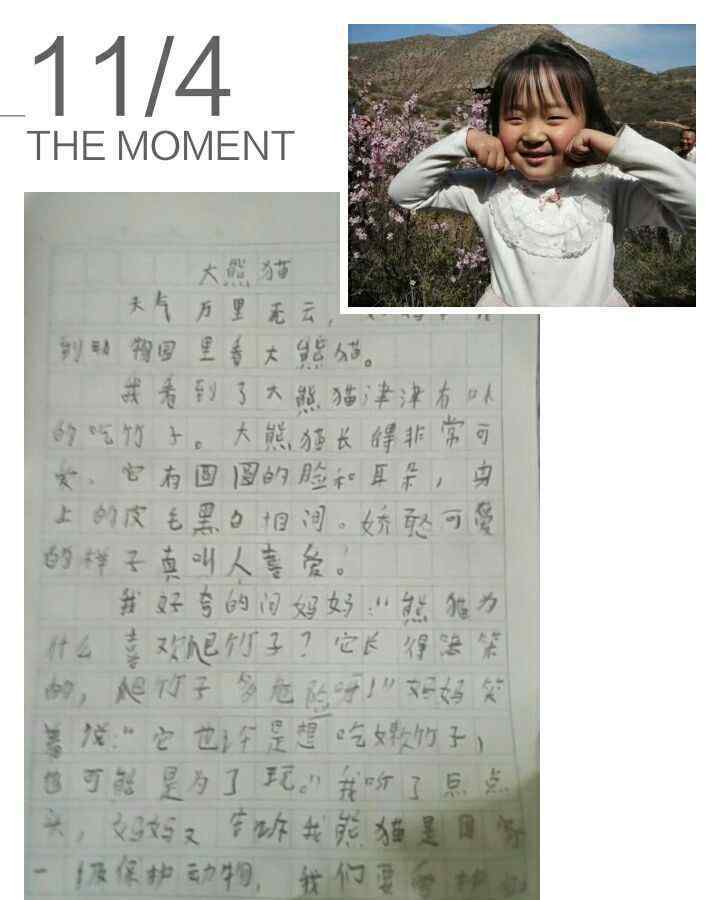 11/4
THE MOMENT
大熊猫
天气万里无云，
到动物园里看大熊猫。
我看到了大熊猫津津有味
的吃竹子。大熊猫长得非常可
爱。它有圆圆的脸和耳朵，身
上的皮毛黑白相间。娇憨可爱
的样子真叫人喜爱！
我好夸的问妈妈："熊猫为
什么喜欢爬竹子？它长得笨笨
的，爬竹子多危险呀！"妈妈笑
着说："它也许是想吃嫩竹子，
也可能是为了玩。"我听了点点
头，妈妈又告诉我熊猫是国家
一级保护动物，我们要